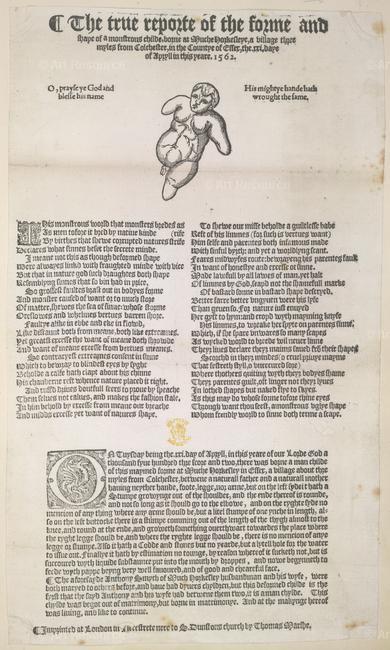 ¶ The true reporte of the forme and
shape of a monstrous childe, borne at Muche Horkesleye, a village three
myles from Colchester, in the Countye of Essex, the .xxi. daye
of Apryll in this yeare. 1562.
O, prayse ye God and
blesse his name
His mightye hande hath
wrought the same.
This monstrous world that monsters bredes as
As men tofore it bred by natiue kinde
By birthes that shewe corrupted natures strife
Declares what sinnes beset the secrete minde.
I meant not this as though deformed shape
Were alwayes linkd with fraughted minde with vice
But that in nature god such draughtes doth shape
Resemblyng sinnes that so bin had in price.
So grossest faultes brast out in bodyes forme
And monster caused of want or to much store
Of matter, shewes the sea of sinne: whose storme
Oreflowes and whelmes vertues barren shore.
Faultye alike in ebbe and eke in flowd,
Like distaunt both from meane, both like extreames.
Yet greatst excesse the want of meane doth shrowde
And want of meane excesse from vertues meanes.
So contraryest extreames consent in sinne
Which to bewray to blindest eyes by syght
Beholde a calfe hath clapt about his chinne
His
To shewe our misse beholde a guiltlesse babe
Reft of his limmes (for such is vertues want)
Him selfe and parentes both infamous made
With sinful byrth: and yet a worldlyng scant.
Feares midwyfes route: bewrayeng his parentes fault
In want of honestye and excesse of sinne.
Made lawfull by all lawes of men, yet halt
Of limmes by God, scapd not the shamefull marke
Of bastard sonne in bastard shape descryed.
Better farre better ungyuen were his lyfe
Than geuen so. For nature iust enuyed
Her gyft to hym
His limmes,
Which, if she spare
As wycked world to brede wil neuer linne
They liues declare theyr maims saued fro their
Scorche in theyr mindes (o cruel priuye mayme
That festreth styll, o vnrecured sore)
Where thothers quiting wyth theyr bodyes shame
Theyr parentes guilt, oft linger not theyr lyues
In lothed shapes but naked flye to skyes.
As this may do whose forme tofore thine eyes
Through want thou seest, a monstrous vglye shape
Whom frendly death to sinne doth terme a scape.
On Tuysday being the .xxi. day of Apryll, in this yeare of our Lorde God a
thousand fyue hundred thre score and two, there was borne a man childe
of this maymed forme at Muche Horkesley in Essex, a village about thre
myles from Colchester, betwene a naturall father and a naturall mother
hauing neyther hande, foote, legge, nor arme, but on the left syde it hath a
Stumpe growynge out of the shoulder, and the ende therof is rounde,
and not so long as it should go to the elbowe, and on the ryghte syde no
mencion of any thing where any arme should be, but a litel stumpe of one ynche in length, al-
so on the left buttocke there is a stumpe comming out of the length of the thygh almost to the
knee, and round at the ende, and groweth something ouerthwart towardes the place where
the ryght legge should be, and where the ryghte legge should be, there is no mencion of anye
legge or stumpe. Also it hath a Codde and stones but no yearde, but a lytell hole for the water
to issue out. Finallye it hath by estimation no tounge, by reason wherof it sucketh not, but is
succoured wyth liquide substaunce put into the mouth by droppes, and nowe begynneth to
feede wyth pappe beyng very well fauoured, and of good and chearefull face.
¶ The aforesayde Anthony Smyth of Much Horkesley husbandman and his wyfe, were
both maryed to others before, and haue had dyuers chyldren, but this deformed childe is the
fyrst that the sayd Anthony and his wyfe had betwene them two, it is a man chylde. This
chylde was begot out of matrimony, but borne in matrimonye. And at the makynge hereof
was liuing, and like to continue.
¶ Imprinted at London in Fletestrete nere to S. Dunstons church by Thomas Marshe.